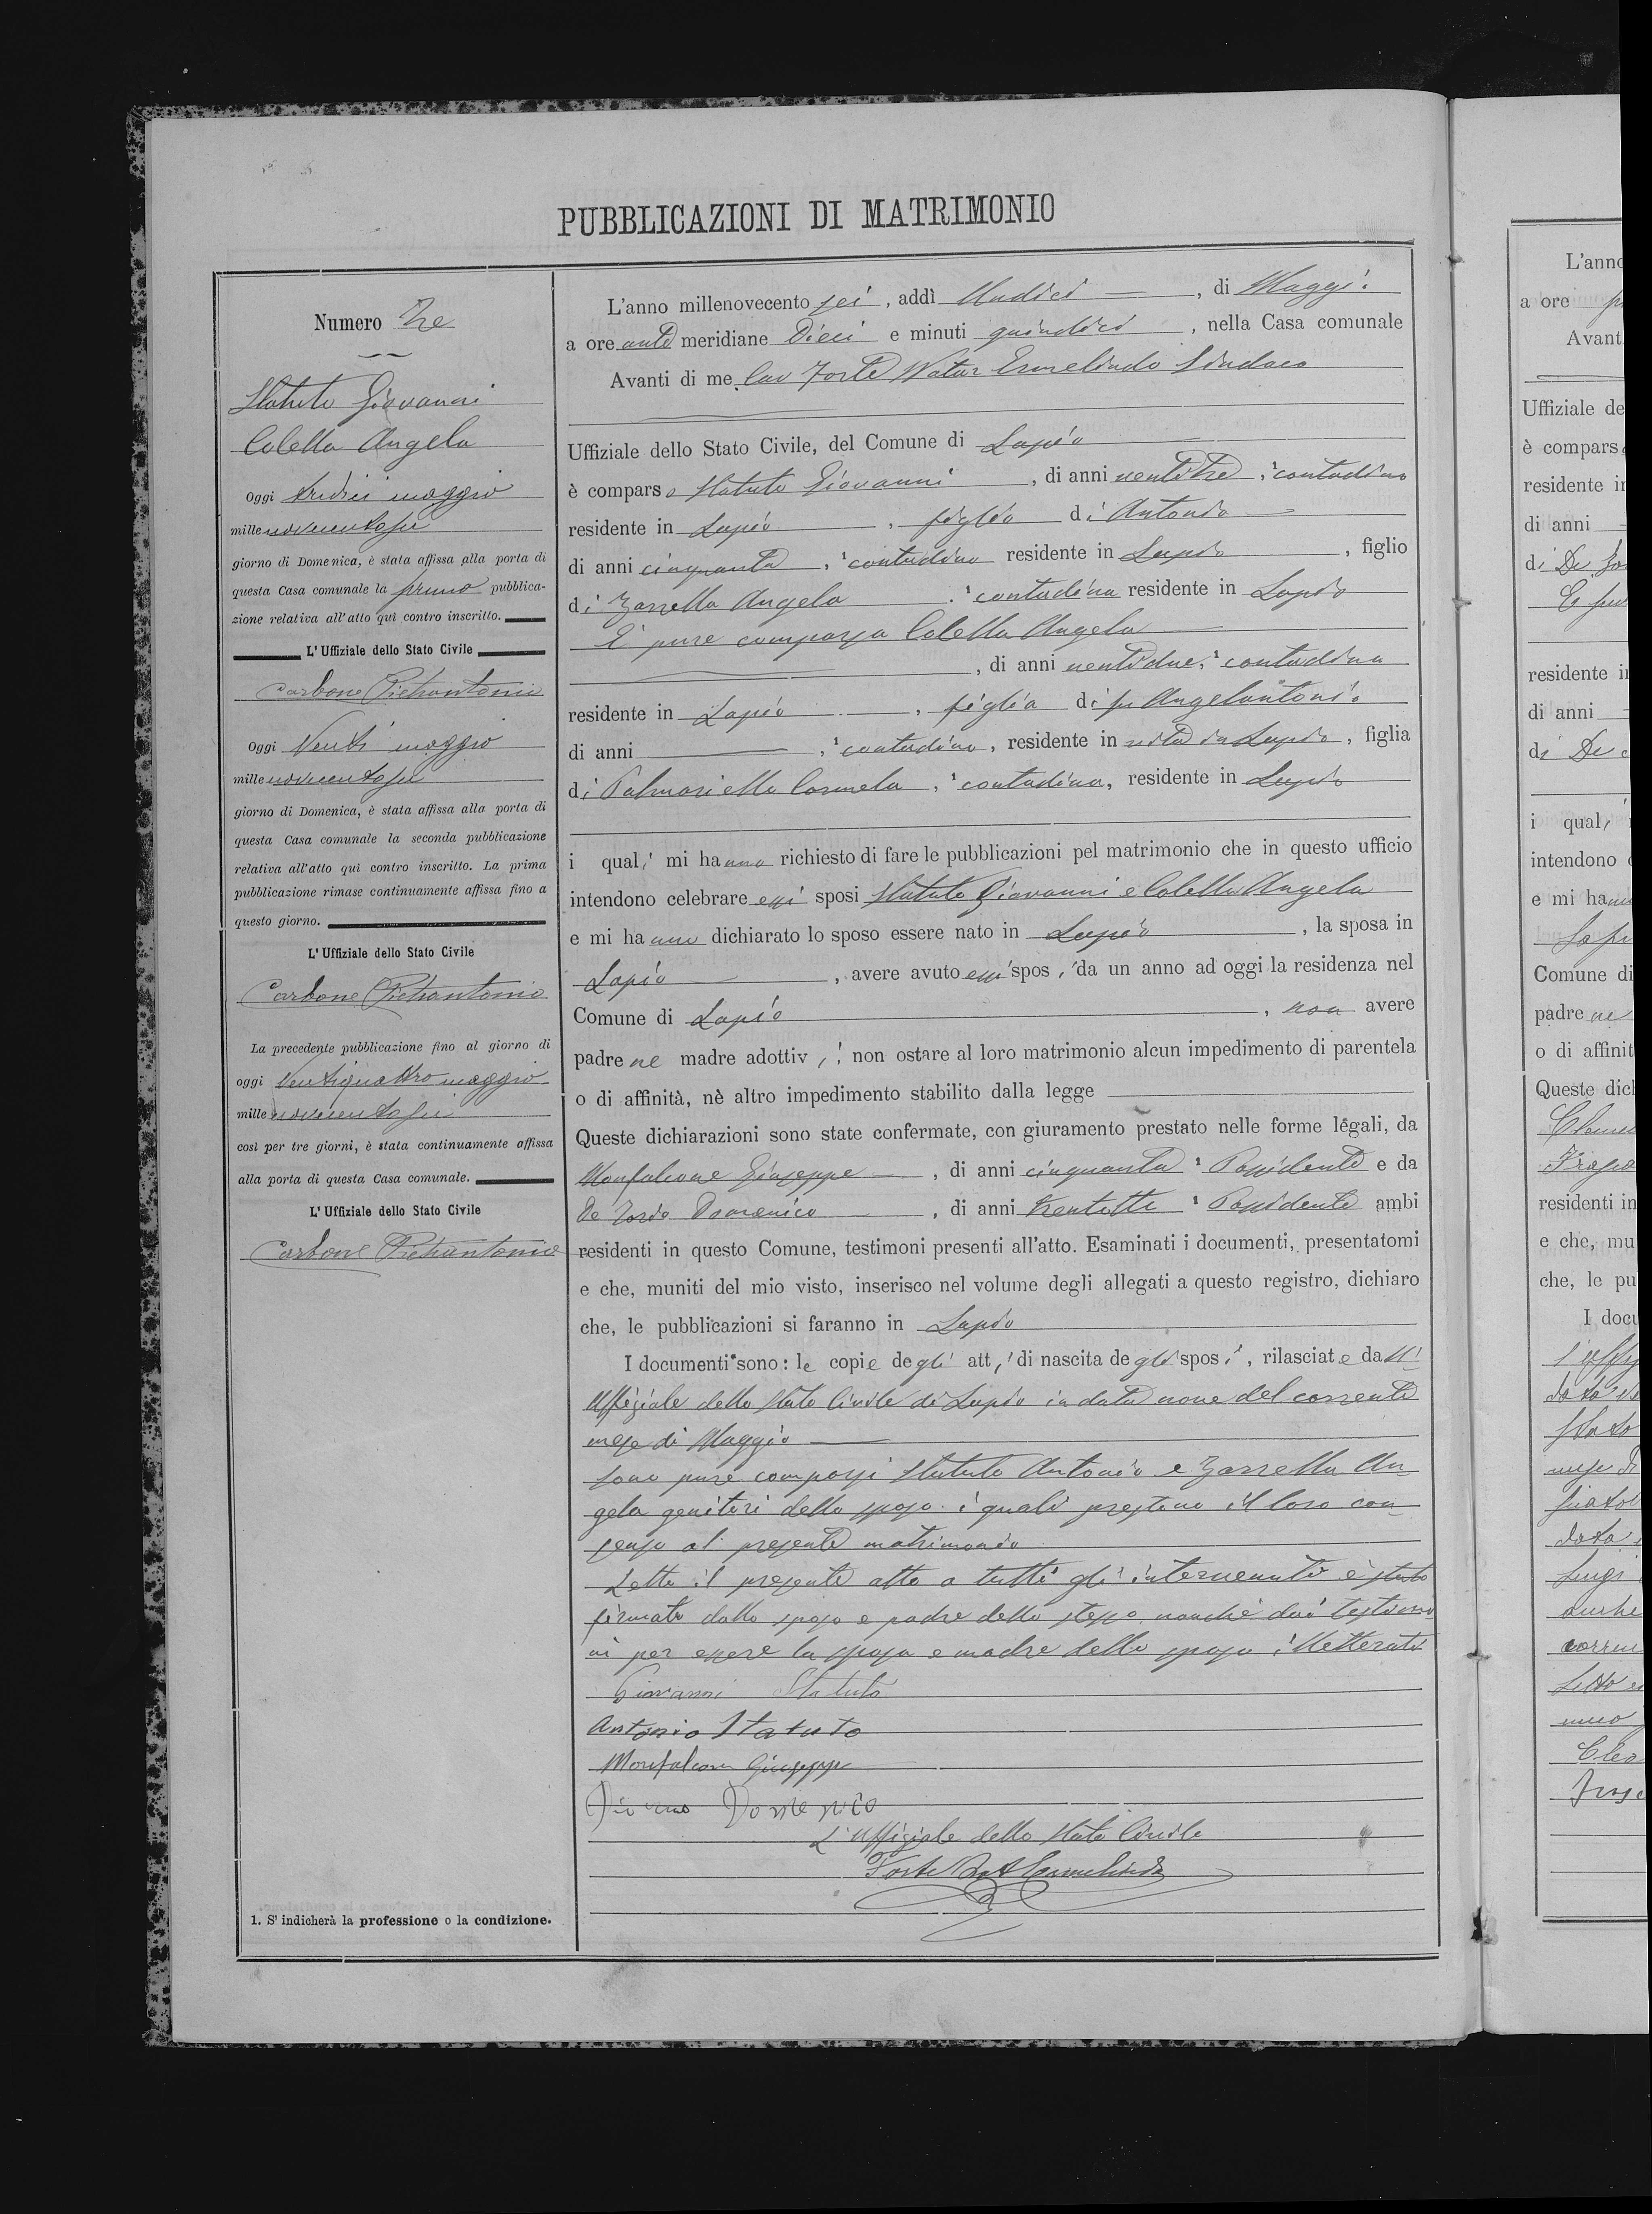 PUBBLICAZIONI DI MATRIMONIO
Numero Tre
Statuto Giovanni
Colella Angela
Oggi tredici maggio
mille novecentosei
giorno di Domenica, è stata affissa alla porta di
questa Casa comunale la prima pubblica-
zione relativa all'atto quì contro inscritto.
L'Uffiziale dello Stato Civile
Carbone Pietrantonio
Oggi Venti maggio
mille novecentosei
giorno di Domenica, è stata affissa alla porta di
questa Casa comunale la seconda pubblicazione
relativa all'atto quì contro inscritto. La prima
pubblicazione rimase continuamente affissa fino a
questo giorno.
L'Uffiziale dello Stato Civile
Carbone Pietrantonio
La precedente pubblicazione fino al giorno di
oggi Ventiquattro maggio
mille novecentosei
così per tre giorni, è stata continuamente affissa
alla porta di questa Casa comunale.
L'Uffiziale dello Stato Civile
Carbone Pietrantonio
1. S'indicherà la professione o la condizione.
L'anno millenovecento sei, addì Undici, di Maggio
a ore anti meridiane Dieci e minuti quindici, nella Casa comunale
Avanti di me Cav Forte Ermelindo Sindaco
Uffiziale dello Stato Civile, del Comune di Lapio
è comparso Statuto Giovanni, di anni ventitre, ¹ contadino
residente in Lapio, figlio di Antonio
di anni cinquanta, ¹ contadino residente in Lapio, figlio
di Zarrella Angela, ¹ contadina residente in Lapio
E pure comparsa Colella Angela
, di anni ventidue, ¹ contadina
residente in Lapio, figlia di fu Angelantonio
di anni , ¹ contadino, residente in vita in Lapio, figlia
di Palmariella Carmela, ¹ contadina, residente in Lapio
i quali mi hanno richiesto di fare le pubblicazioni pel matrimonio che in questo ufficio
intendono celebrare essi sposi Statuto Giovanni e Colella Angela
e mi hanno dichiarato lo sposo essere nato in Lapio, la sposa in
Lapio, avere avuto essi sposi da un anno ad oggi la residenza nel
Comune di Lapio, non avere
padre ne madre adottivi, non ostare al loro matrimonio alcun impedimento di parentela
o di affinità, nè altro impedimento stabilito dalla legge
Queste dichiarazioni sono state confermate, con giuramento prestato nelle forme légali, da
Monfalcone Giuseppe, di anni cinquanta ¹ Possidente e da
De Domenico, di anni trentotto ¹ Possidente ambi
residenti in questo Comune, testimoni presenti all'atto. Esaminati i documenti, presentatomi
e che, muniti del mio visto, inserisco nel volume degli allegati a questo registro, dichiaro
che, le pubblicazioni si faranno in Lapio
I documenti sono: le copie degli atti di nascita degli sposi, rilasciate dall'
Uffiziale dello Stato Civile di Lapio in data nove del corrente
mese di Maggio
Sono pure comparsi Statuto Antonio e Zarrella An
gela genitori dello sposo i quali prestano il loro con
senso al presente matrimonio
Letto il presente atto a tutti gli intervenuti è stato
firmato dallo sposo e padre dello stesso nonchè dai testimo
ni per essere la sposa e madre dello sposo illetterati
Giovanni Statuto
Antonio Statuto
Monfalcone Giuseppe
Domenico
L'Uffiziale dello Stato Civile
Forte Ermelindo
L'anno
a ore
Avant
Uffiziale de
è compars
residente in
di anni
di De
residente in
di anni
di De
i quali
intendono
e mi hann
Comune di
padre ne
o di affinit
Queste dich
residenti in
e che, mu
che, le pu
I docu